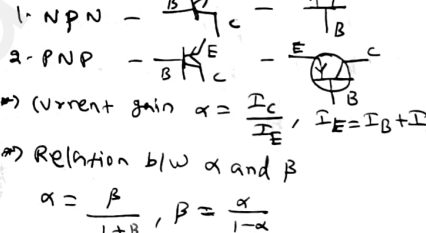 1. NPN - B C - B
2- PNP - B E C - E C B
*) Current gain α = I_C / I_E , I_E = I_B + I
*) Relation b/w α and β
α = β / 1+β , β = α / 1-α